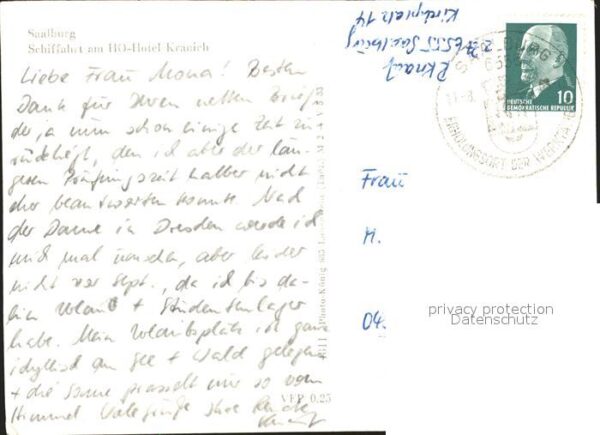 Saalburg
Schiffahrt am HO-Hotel Kranich
Liebe Frau Mona! Besten
Dank für Ihren netten Brief,
der, a nun schon einige Zeit zu-
rückliegt, den ich aber der lan-
gen Prüfungszeit halber nicht
eher beantworten konnte. Nach
der Dame in Dresden werde ich
mich mal umsehen, aber leider
nicht vor Sept., da ich bis da-
hin Urlaub + Studentenlager
habe. Mein Urlaubsplatz ist ganz
idyllisch am See + Wald gelegen
+ die Sonne prasselt nur so vom
Himmel
VEB 0,25
Saalburg
Kirchplatz 14
DEUTSCHE
DEMOKRATISCHE REPUBLIK
10
SAALBURG
Frau
M.
04.
privacy protection
Datenschutz